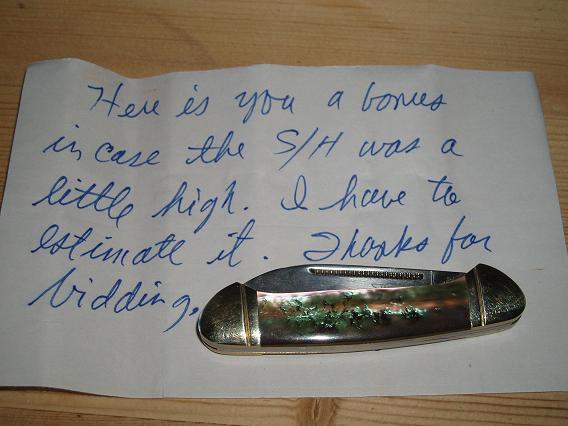 Here is you a bonus
in case the S/H was a
little high. I have to
estimate it. Thanks for
bidding.